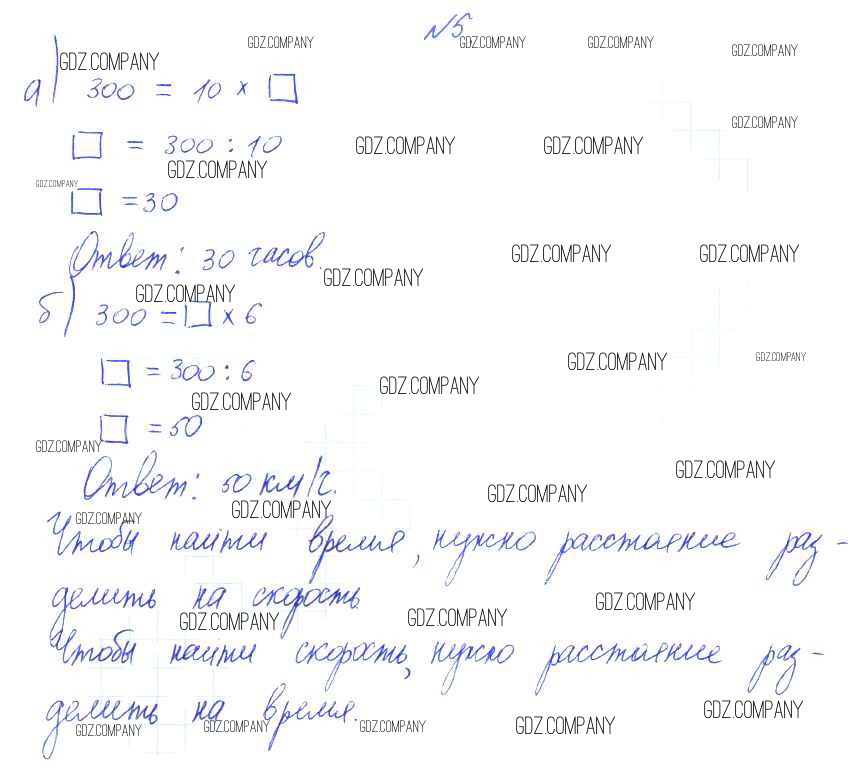 №5
GDZ.COMPANY GDZ.COMPANY GDZ.COMPANY GDZ.COMPANY GDZ.COMPANY
а) 300 = 10 × □
GDZ.COMPANY
□ = 300 : 10 GDZ.COMPANY GDZ.COMPANY
GDZ.COMPANY
GDZ.COMPANY
□ = 30
Ответ: 30 часов. GDZ.COMPANY GDZ.COMPANY
GDZ.COMPANY
GDZ.COMPANY
б) 300 = □ × 6
GDZ.COMPANY GDZ.COMPANY
□ = 300 : 6 GDZ.COMPANY
GDZ.COMPANY
□ = 50
GDZ.COMPANY
Ответ: 50 км/ч. GDZ.COMPANY GDZ.COMPANY
GDZ.COMPANY GDZ.COMPANY
Чтобы найти время, нужно расстояние раз-
делить на скорость.
GDZ.COMPANY GDZ.COMPANY GDZ.COMPANY
Чтобы найти скорость, нужно расстояние раз-
делить на время.
GDZ.COMPANY GDZ.COMPANY GDZ.COMPANY GDZ.COMPANY GDZ.COMPANY